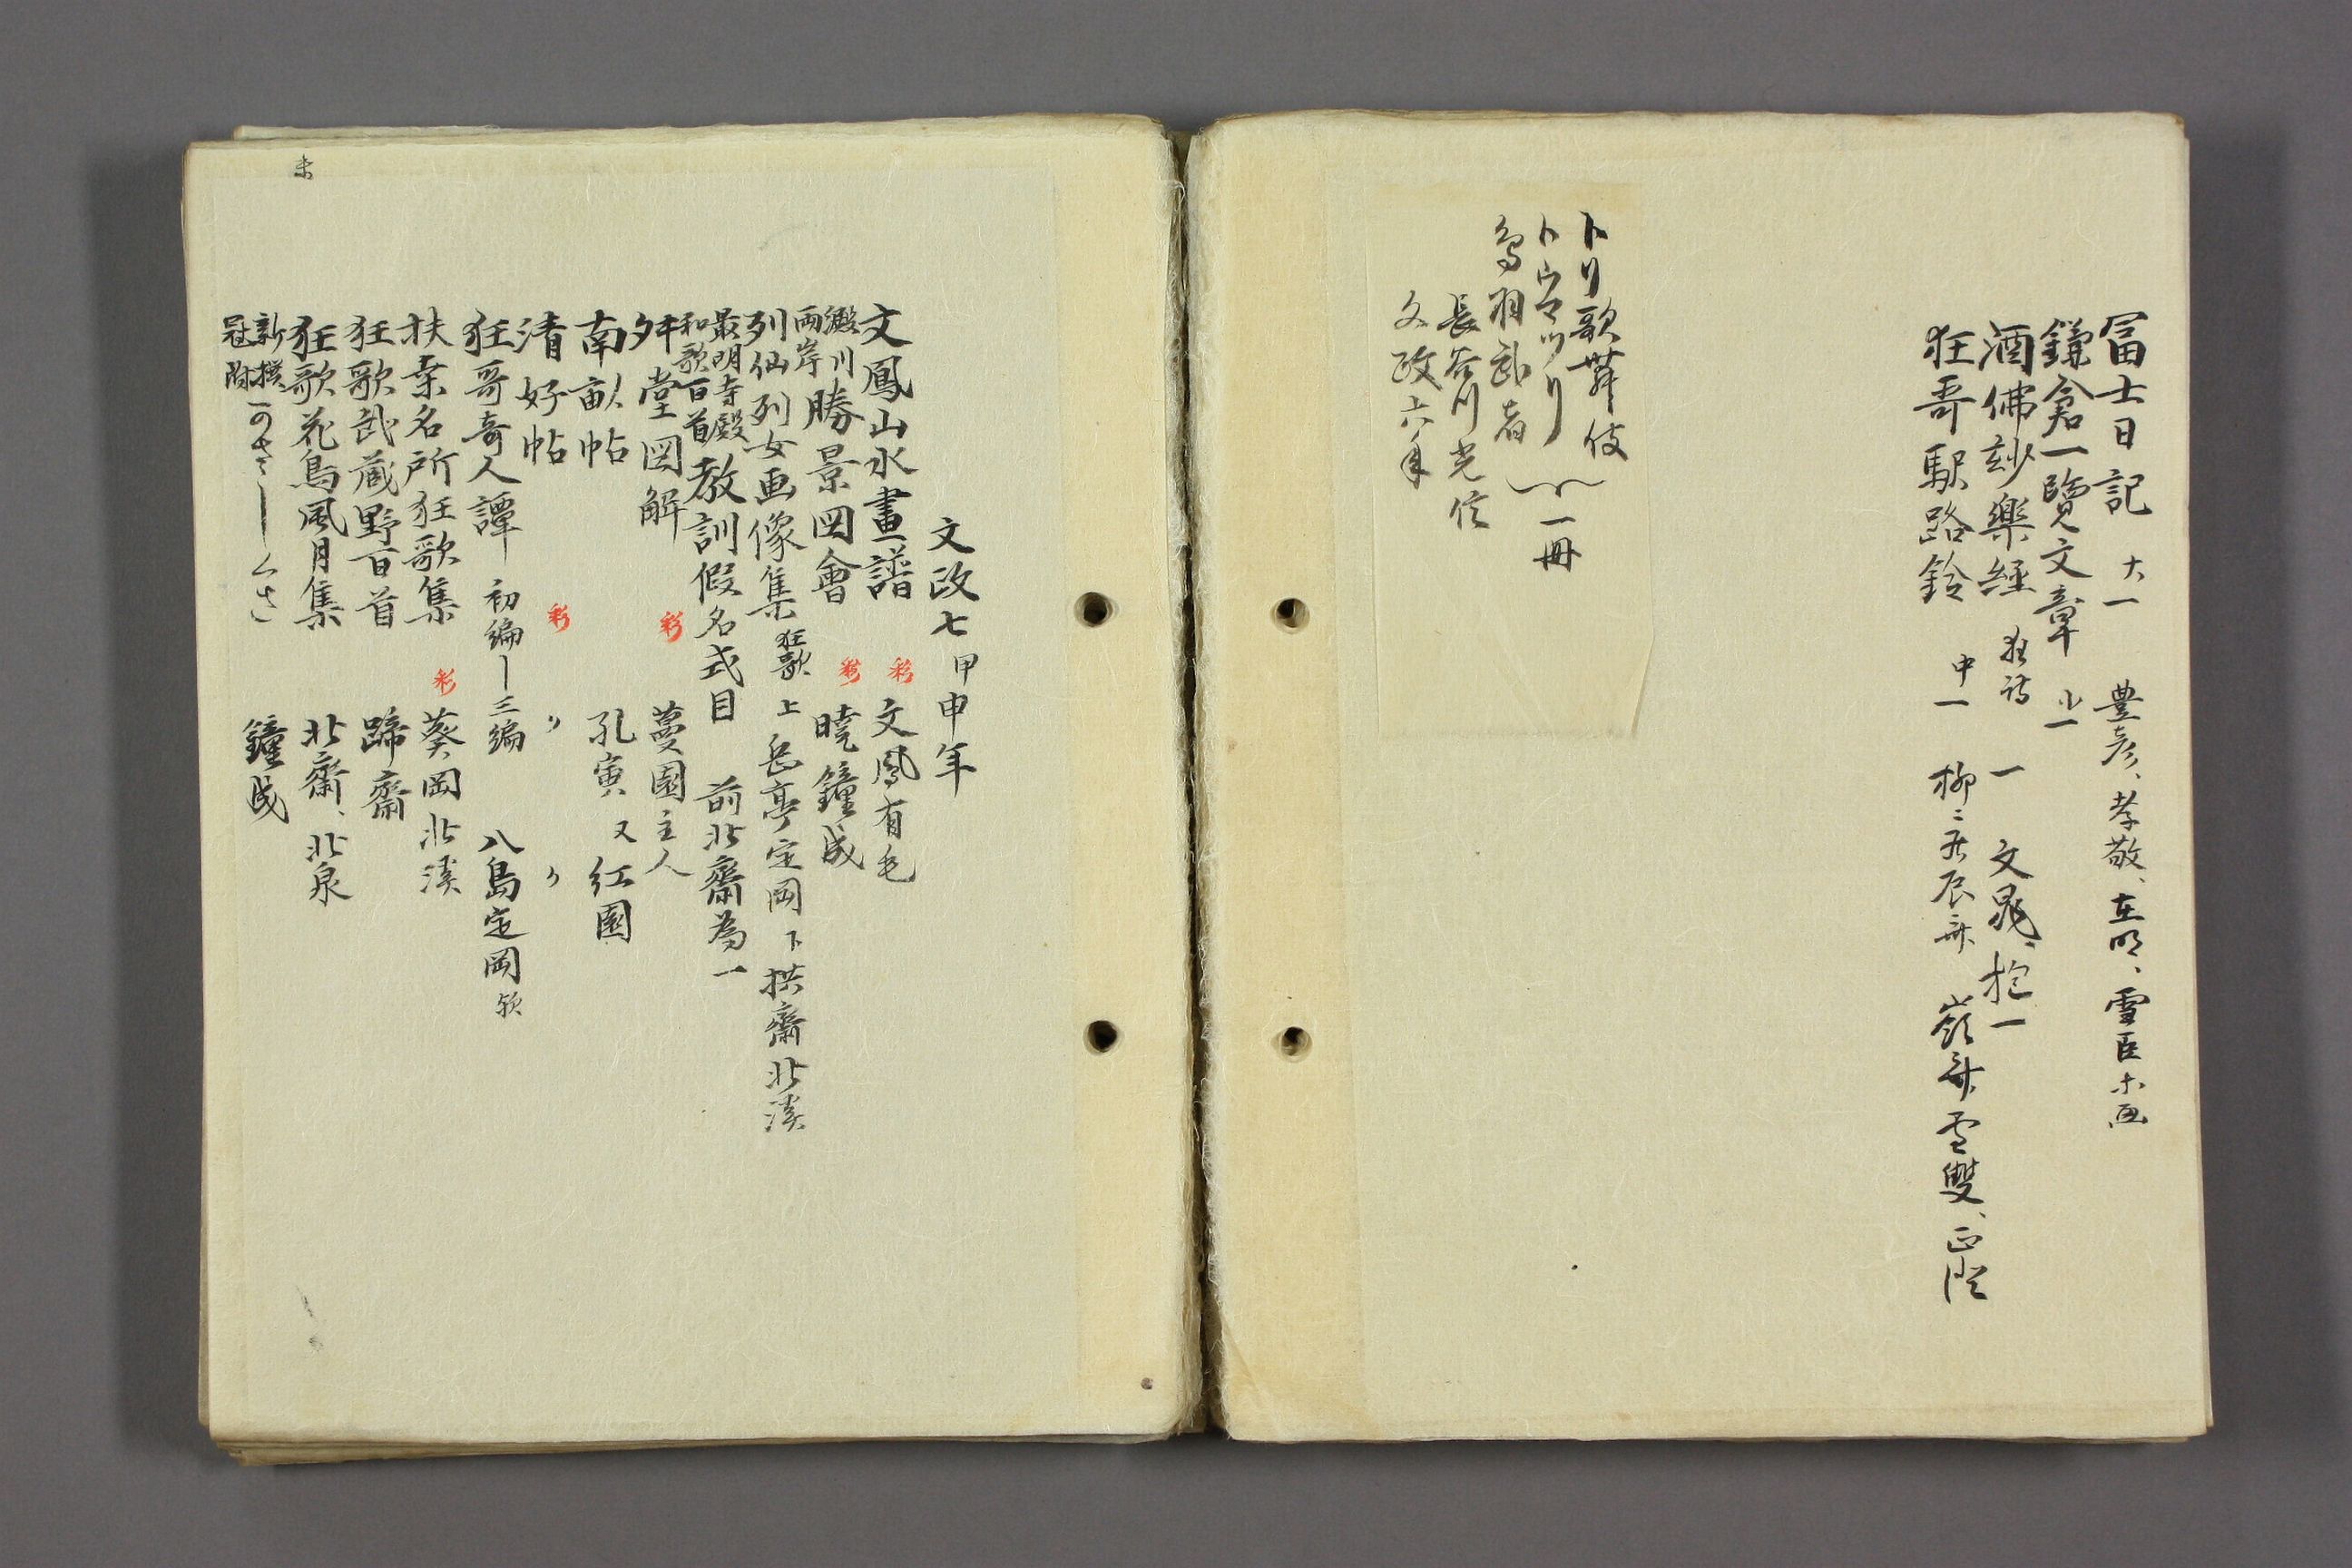 冨士日記 大一 豊彦、孝敬、在明、雪臣ホ画
鎌倉一覧文章 小一
酒佛玅樂經 狂詩 一 文晁、抱一
狂哥駅路鈴 中一 柳々居辰斎 嶺斎雪雙、
歌舞伎
一冊
鳥羽武者
長谷川光信
文政六年
文政七甲申年
文鳳山水畫譜 彩 文鳳有毛
澱川両岸勝景図會 彩 暁鐘成
列仙列女画像集 狂歌 上 岳亭定岡 下 拱齋北溪
最明寺殿和歌百首教訓假名式目 前北齋為一
堂図解 彩 蔓園主人
南畝帖 孔寅 又 紅園
清好帖 彩 〃 〃
狂哥奇人譚 初編ー三編 八島定岡 欤
扶桑名所狂歌集 彩 葵岡北溪
狂歌武蔵野百首 蹄齋
狂歌花鳥風月集 北齋、北泉
新撰冠附 鐘成
未